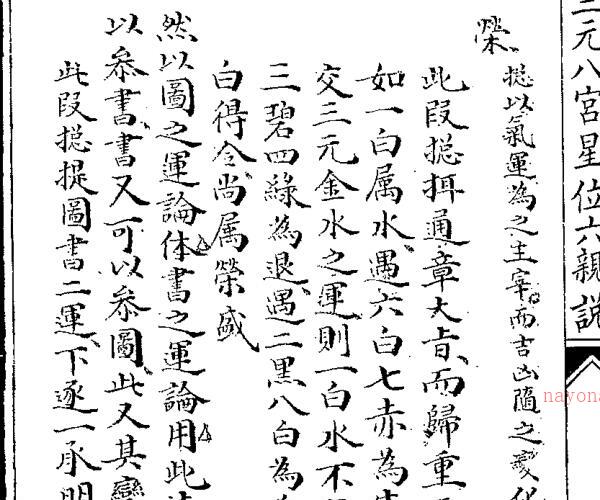 三元八宮星位六親說
榮
搃以氣運為之主宰而吉凶隨之變化
此段搃挕通章大旨而歸重
如一白属水遇六白七赤為生
交三元金水之運則一白水不
三碧四綠為退遇二黑八白為
白得令尚属榮盛
然以圖之運論体書之運論用此
以參書書又可以參圖此又其變
此段搃提圖書二運下逐一承明
nayona